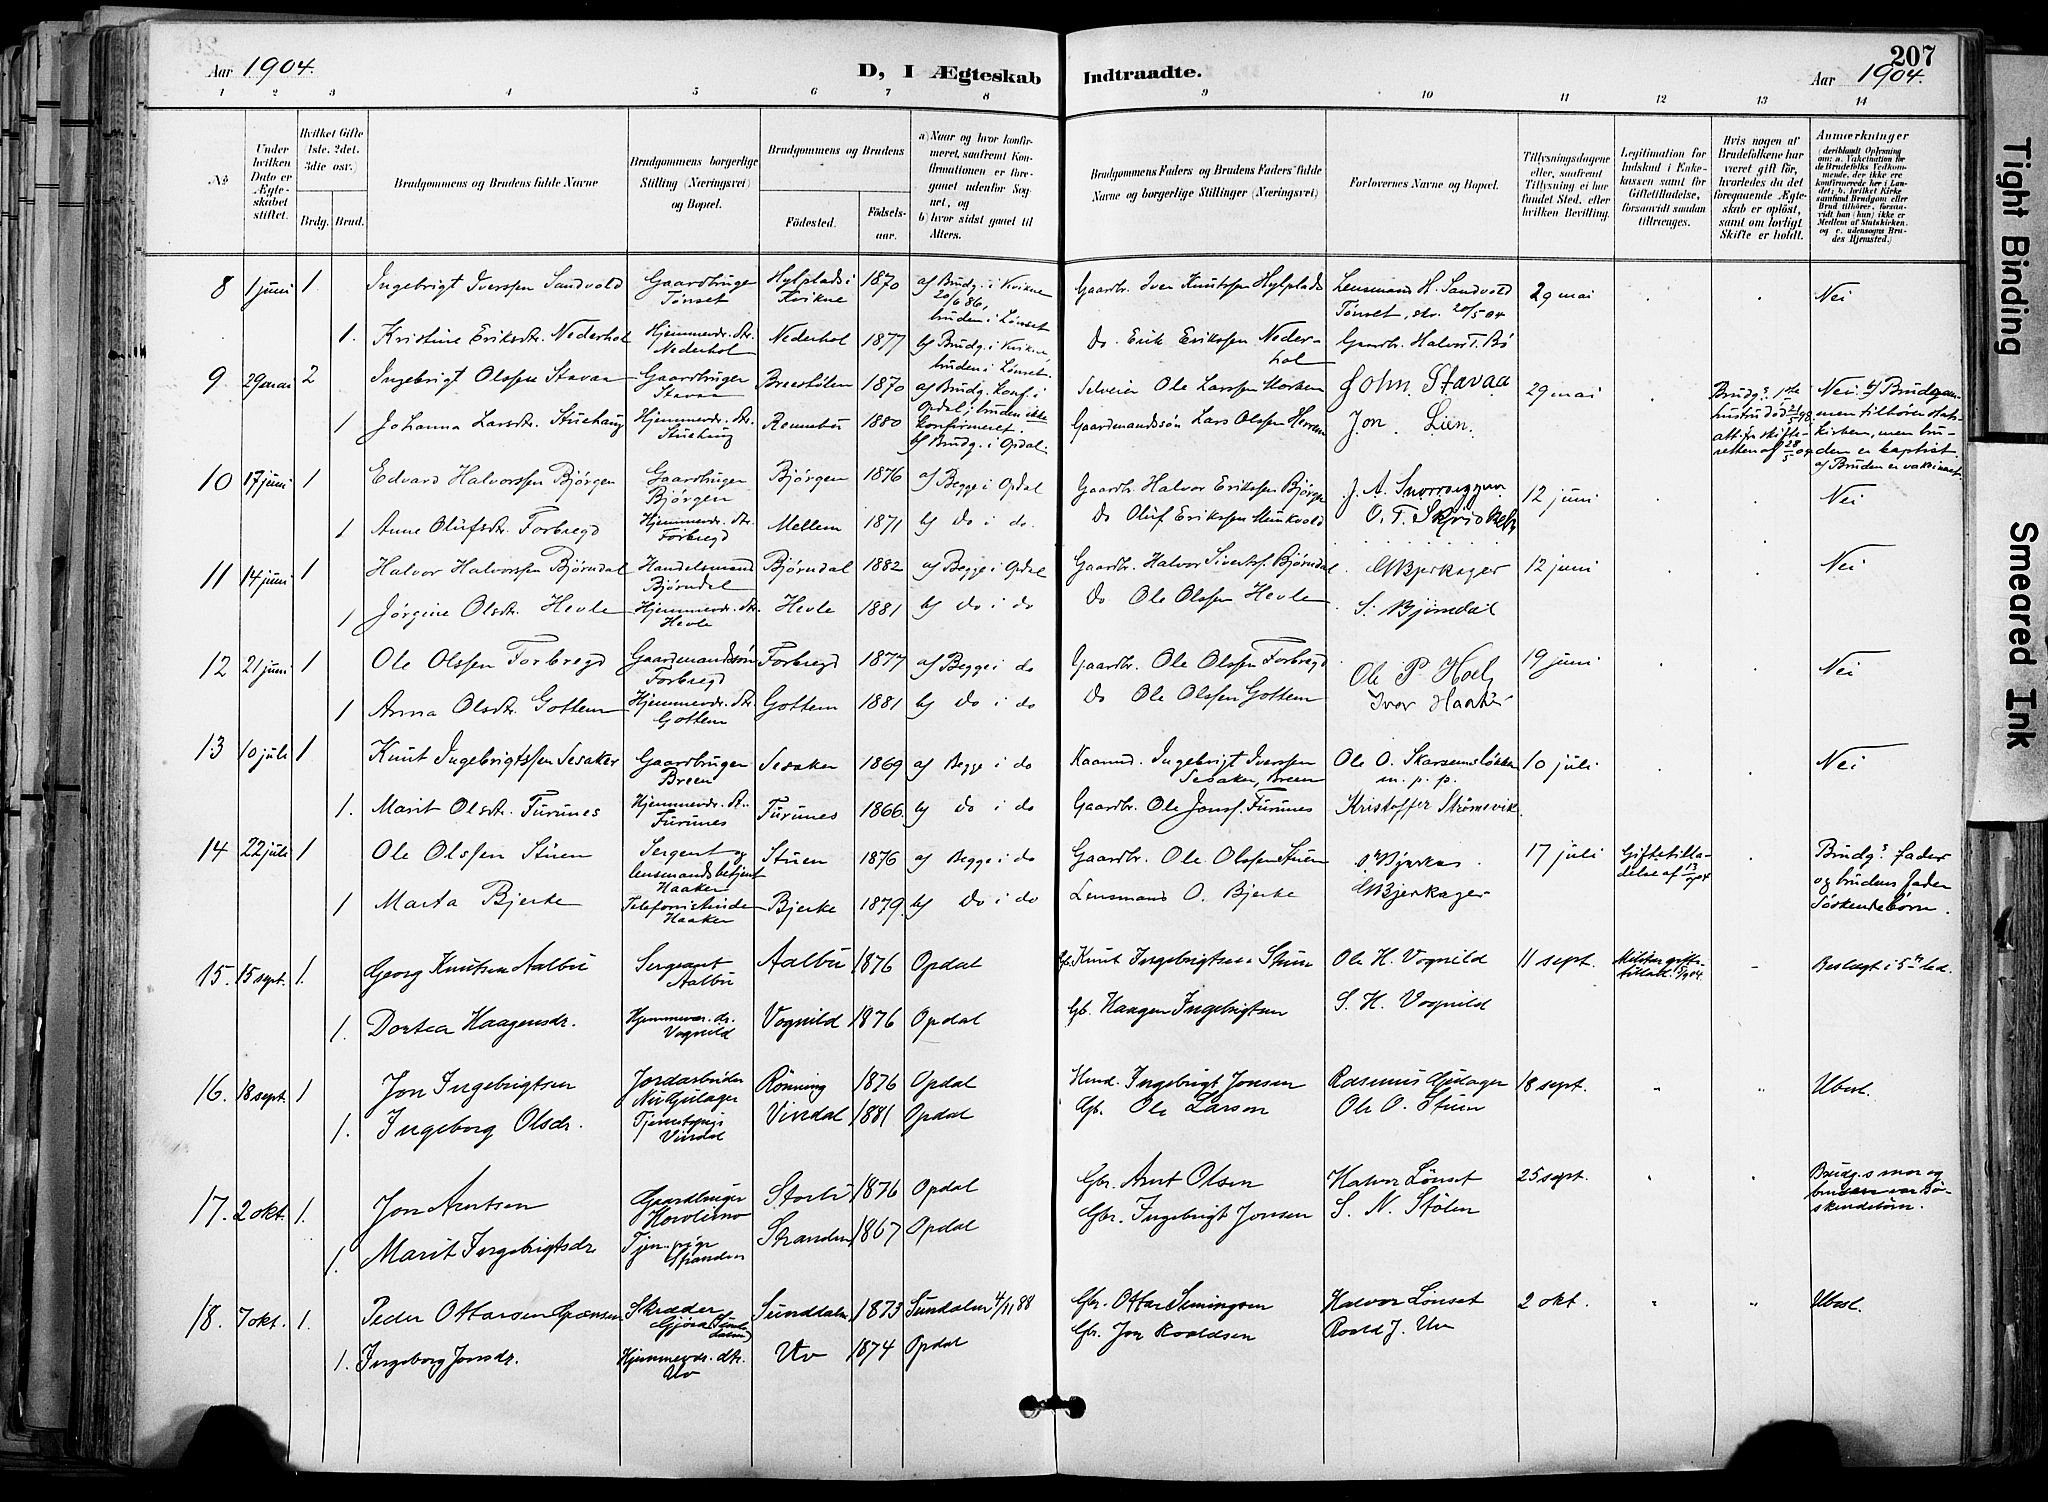 207
Aar 1904.
D, I Ægteskab Indtraadte.
Aar 1904.
1 2 3 4 5 6 7 8 9 10 11 12 13 14
No.
Under hvilken Dato er Ægteskabet stiftet.
Hvilket Gifte 1ste, 2det, 3die osv.
Brdg. Brud.
Brudgommens og Brudens fulde Navne
Brudgommens borgerlige Stilling (Næringsvei) og Bopæl.
Brudgommens og Brudens
Fødested. Fødselsaar.
a) Naar og hvor konfirmeret, saafremt Konfirmationen er foregaaet udenfor Sognet, og b) hvor sidst gaaet til Alters.
Brudgommens Faders og Brudens Faders fulde Navne og borgerlige Stillinger (Næringsvei)
Forlovernes Navne og Bopæl.
Tillysningsdagene eller, saafremt Tillysning ei har fundet Sted, efter hvilken Bevilling.
Legitimation for Indskud i Enkekassen samt for Giftetilladelse, forsaavidt saadan tiltrænges.
Hvis nogen af Brudefolkene har været gift før, hvorledes da det foregaaende Ægteskab er opløst, samt om lovligt Skifte er holdt.
Anmærkninger (deriblandt Oplysning om: a. Vakcination for de Brudefolks Vedkommende, der ikke ere konfirmerede her i Landet; b. hvilket Kirkesamfund Brudgom eller Brud tilhører, forsaavidt han (hun) ikke er Medlem af Statskirken, og c. udensogns Brudes Hjemsted.)
8 1 juni 1 Ingebrigt Iverssen Sandvold Gaardbruger Tønset Hylplads i Kvikne 1870 a) Brudg. i Kvikne 20/6 86, bruden i Lønset Gaardbr. Iver Knutssen Hylplads Lensmand H. Sandvold Tønset, skr. 20/5 04 29 mai Nei
1. Kristine Eriksdtr. Nederhol Hjemmev. dtr. Nederhol Nederhol 1877 b) Brudg. i Kvikne, bruden i Lønset. Do. Erik Erikssen Nederhol Gaardbr. Halvor T. Bø
9 29 mai 2 Ingebrigt Olssen Stavaa Gaardbruger Stavaa Breestølen 1870 a) Brudg. Konf. i Opdal, bruden ikke konfirmeret. Selveier Ole Larssen John Stavaa 29 mai
1 Johanna Larsdtr. Stuehaug Hjemmev. dtr. Stuehaug Rennebu 1880 b) Brudg. i Opdal. Gaardmandssøn Lars Olssen Jon Lien.
Nei. b) Brudgommen tilhører statskirken, men bruden er baptist. a) Bruden er vakcineret.
10 17 juni 1 Edvard Halvorssen Bjørgen Gaardbruger Bjørgen Bjørgen 1876 a) Begge i Opdal Gaardbr. Halvor Erikssen Bjørgen 12 juni Nei
1 Anne Olufsdtr. Forbregd Hjemmev. dtr. Forbregd Mellem 1871 b) do i do. Do Oluf Erikssen Munkvold
11 14 juni 1 Halvor Halvorssen Bjørndal Handelsmand Bjørndal Bjørndal 1882 a) Begge i Opdal Gaardbr. Halvor Sivertss. Bjørndal Bjerkager 12 juni Nei
1 Jørgine Olsdtr. Hevle Hjemmev. dtr. Hevle Hevle 1881 b) do i do Do Ole Olssen Hevle S. Bjørndal
12 21 juni 1 Ole Olssen Forbregd Gaardmandssøn Forbregd Forbregd 1877 a) Begge i do Gaardbr. Ole Olssen Forbregd Ole P. Hoel 19 juni Nei
1 Anna Olsdtr. Gottem Hjemmev. dtr. Gottem Gottem 1881 b) do i do Do Ole Olssen Gottem Iver
13 10 juli 1 Knut Ingebrigtssen Sesaker Gaardbruger Breen Sesaker 1869 a) Begge i do Kaarmd. Ingebrigt Iverssen Sesaker, Breen Ole O. Skarsemsløkken m. p. p. 10 juli Nei
1. Marit Olsdtr. Furunes Hjemmev. dt. Furunes Furunes 1866 b) do i do Gaardbr. Ole Jonss. Furunes Kristoffer Strømsvik
14 22 juli 1 Ole Olssen Stuen Sergent og lensmandsbetjent Haaker Stuen 1876 a) Begge i do Gaardbr. Ole Olssen Stuen 17 juli Giftetilladelse af 13/7 04 Brudgs. fader og brudens fader Søskendebørn.
1 Marta Bjerke Telefonistinde Haaker Bjerke 1879 b) do i do Lensmand O. Bjerke Bjerkager
15. 15 sept. 1. Georg Knutsen Aalbu Sergeant Aalbu Aalbu 1876 Opdal Gb. Knut Ingebrigtsen Stuen Ole H. Vognild 11 sept. Beslægt i 5te led.
1. Dortea Haagensdr. Hjemmev. dr. Vognild Vognild 1876 Opdal Gb. Haagen Ingebrigtsen S. H. Vognild
16. 18 sept. 1 Jon Ingebrigtsen Jordarbeider Rønning 1876 Opdal Ingebrigt Jonsen Rasmus Gjulager 18 sept. Ubesl.
1. Ingeborg Olsdr. Tjenestepige Vindal Vindal 1881 Opdal Gb. Ole Larsen Ole O. Stuen
17. 2 okt. 1. Jon Arntsen Gaardbruger Storli 1876 Opdal Gbr. Arnt Olsen Halvor Lønset 25 sept. Brudg.s mor og bruden var søskendebørn.
1. Marit Ingebrigtsdr. Tjen. pige Stranden Stranden 1867 Opdal Gbr. Ingebrigt Jonsen S. N. Stølen
18. 7 okt. 1. Peder Ottarsen Skræder Gjøra Sunddalen 1873 Sundalen 4/11 88 Gbr. Ottar Halvor Lønset 2 okt. Ubesl.
1. Ingeborg Jonsdr. Hjemmev. dtr. Uv Uv 1874 Opdal Gbr. Jon Roaldsen Roald J. Uv
Tight Binding
Smeared Ink